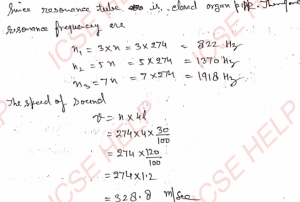 Since resonance tube is closed organ pipe. Therefore
resonance frequency are
n₁ = 3×n = 3×274 = 822 Hz
n₂ = 5n = 5×274 = 1370 Hz
n₃ = 7n = 7×274 = 1918 Hz
The speed of Sound
v = n × 4l
= 274×4× 30/100
= 274× 120/100
= 274×1.2
= 328.8 m/sec
ICSE HELP
ICSE HELP
ICSE HELP